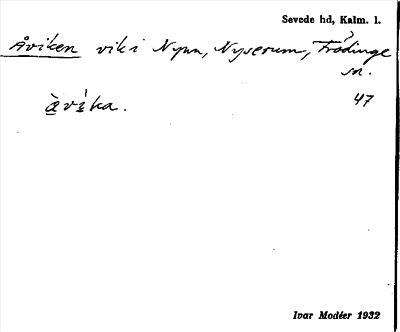 Sevede hd, Kalm. l.
Åviken vik i Nynn, Nyserum, Frödinge
sn.
47
àvíka.
Ivar Modéer 1932